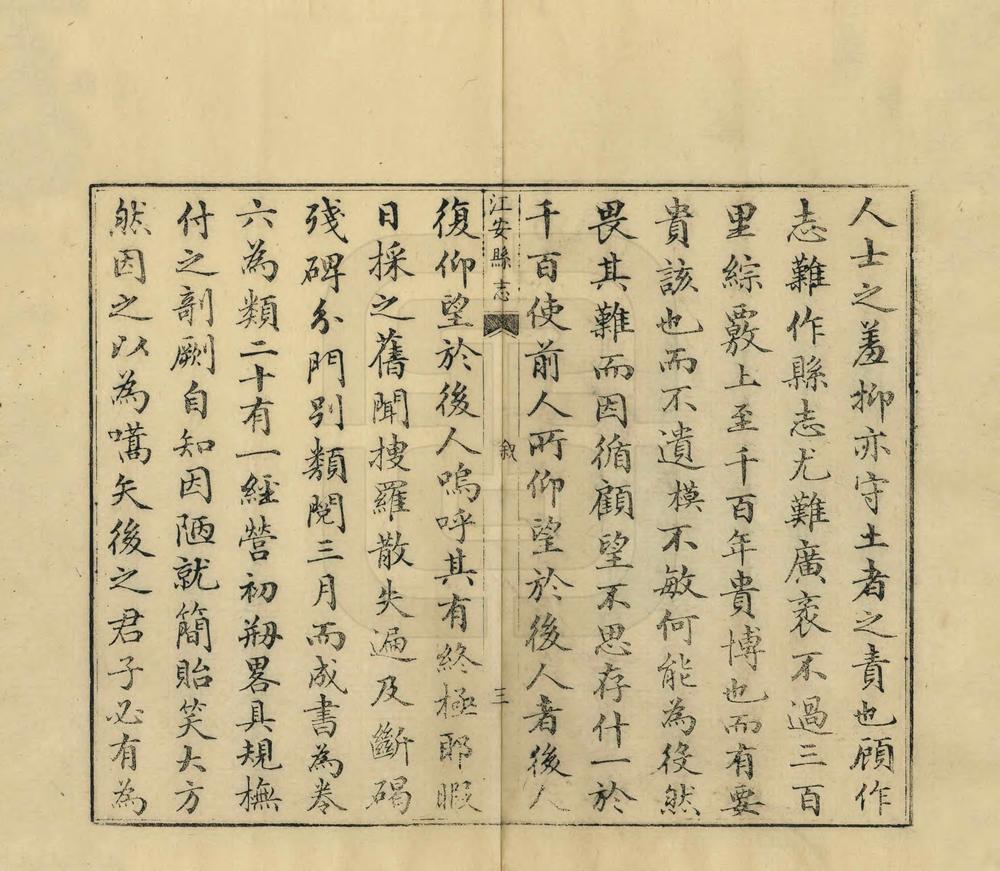 人士之羞抑亦守土者之責也顧作
志難作縣志尤難廣袤不過三百
里綜覈上至千百年貴博也而有要
貴該也而不遺模不敏何能為役然
畏其難而因循顧望不思存什一於
千百使前人所仰望於後人者後人
江安縣志
敘
三
復仰望於後人嗚呼其有終極耶暇
日採之舊聞搜羅散失遍及斷碣
殘碑分門別類閱三月而成書為卷
六為類二十有一經營初剙畧具規橅
付之剞劂自知因陋就簡貽笑大方
然因之以為嚆矢後之君子必有為